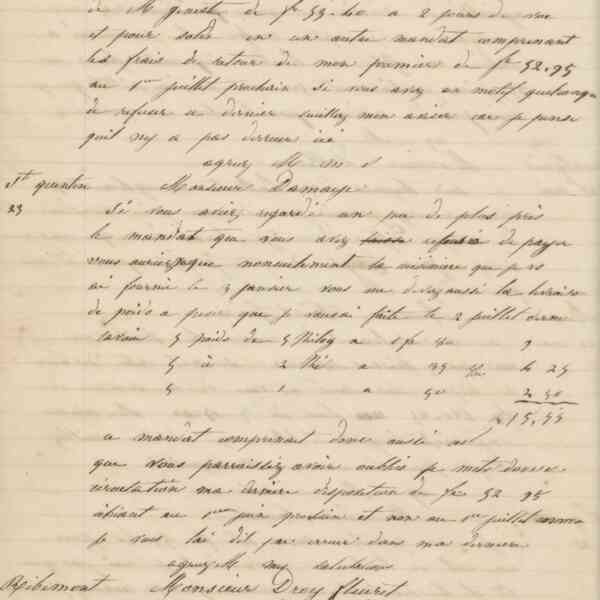 de M ginette de fr 53.40 a 2 jours de vue
et pour solde en un autre mandat comprenant
les frais de retour de mon premier de fr 52.95
au 1er juillet prochain si vous avez un motif quelconque
de refuser ce dernier veuillez men aviser car je pense
quil ny a pas derreur ici
agréez M
St quentin Monsieur Damaye
23 Si vous aviez regardé un peu de plus près
le mandat que vous avez refusé de payer
vous auriez que nonseulement la que je vs
ai fournie le 3 janvier vous me devez aussi la livraison
de poids a peser que je vousai faite le 2 juillet dernier
savoir 5 poids de 5 Kilog a
5 à 2 Kil a 85 4 25
5 1 a 50 2 50
15,55
ce mandat comprenait donc aussi
que vous parraissiez avoir oublié je mets donc en
circulation ma dernière disposition de fr 52 95
au 1er juin prochain et non au 1er juillet comme
je vous lai dit par erreur dans ma dernière
agréez M mes salutations
Ribemont Monsieur Droy fleuret